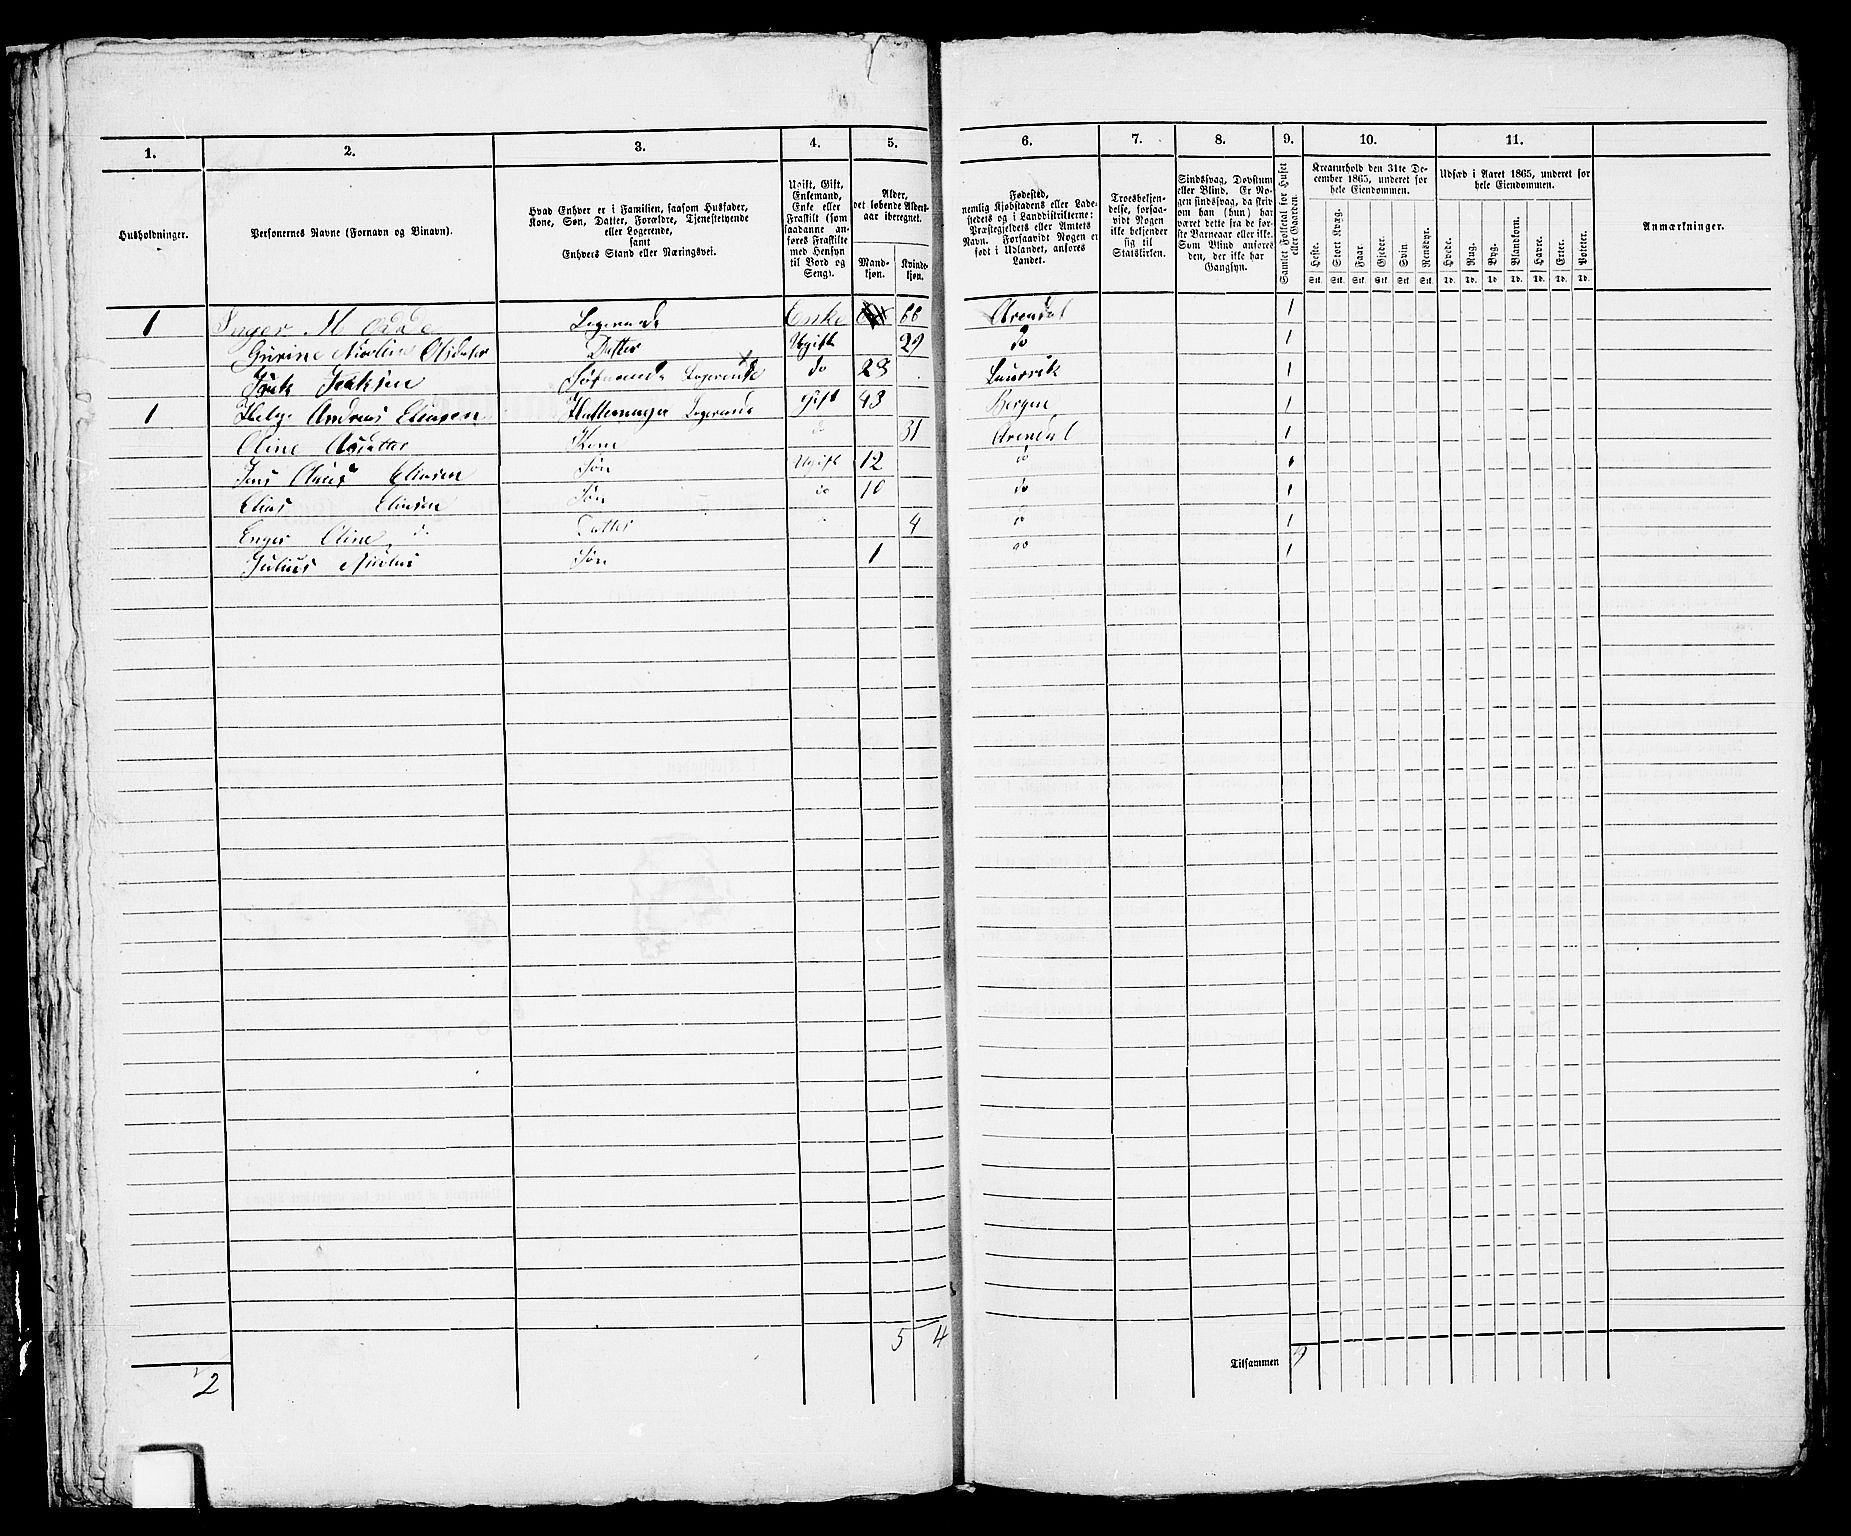 1. 2. 3. 4. 5. 6. 7. 8. 9. 10. 11.
Husholdninger.
Personernes Navne (Fornavn og Binavn).
Hvad Enhver er i Familien, saasom Husfader,
Kone, Søn, Datter, Forældre, Tjenestetyende
eller Logerende,
samt
Enhvers Stand eller Næringsvei.
Ugift, Gift,
Enkemand,
Enke eller
Fraskilt (som
saadanne an-
føres Fraskilte
med Hensyn
til Bord og
Seng).
Alder,
det løbende Alders-
aar iberegnet.
Mand-
kjøn.
Kvinde-
kjøn.
Fødested,
nemlig Kjøbstadens eller Lade-
stedets og i Landdistrikterne:
Præstegjeldets eller Amtets
Navn. Forsaavidt Nogen er
født i Udlandet, anføres
Landet.
Troesbekjen-
delse, forsaa-
vidt Nogen
ikke bekjender
sig til
Statskirken.
Sindssvag, Døvstum
eller Blind. Er No-
gen sindssvag, da skriv
om han (hun) har
været dette fra de før-
ste Barneaar eller ikke.
Som Blind anføres
den, der ikke har
Gangsyn.
Samlet Folketal for Huset
eller Gaarden.
Kreaturhold den 31te De-
cember 1865, underet for
hele Eiendommen.
Heste. Stort Kvæg. Faar. Gjeder. Svin Rensdyr.
Stk. Stk. Stk. Stk. Stk. Stk.
Udsæd i Aaret 1865, underet for
hele Eiendommen.
Hvede. Rug. Byg. Blandkorn. Havre. Erter. Poteter.
Td. Td. Td. Td. Td. Td. Td.
Anmærkninger.
1 Inger M Logerende Enke 66 Arendal 1
Gurine Datter Ugift 29 do 1
Logerende do 23 Laurvik 1
1 Helge Andreas Eliasen Hattemager Logerende Gift 43 Bergen 1
Oline Kone 31 Arendal 1
Jens Eliasen Søn Ugift 12 do 1
Elias Eliasen Søn do 10 do 1
Enger Oline Datter 4 do 1
Julius Søn 1 do 1
5 4
Tilsammen 9
2